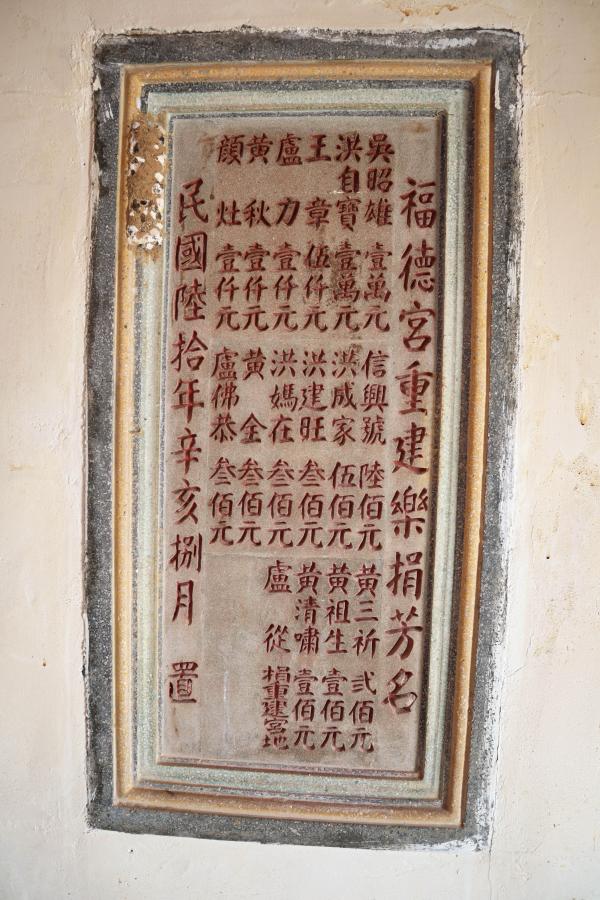 福德宮重建樂捐芳名
吳昭雄 壹萬元
洪自寶 壹萬元
王章 伍仟元
盧力 壹仟元
黃秋 壹仟元
顏灶 壹仟元
信興號 陸佰元
洪成家 伍佰元
洪建旺 叁佰元
洪媽在 叁佰元
黃金 叁佰元
盧佛恭 叁佰元
黃三祈 弍佰元
黃祖生 壹佰元
黃清嘯 壹佰元
盧從 捐重建宮地
民國陸拾年辛亥捌月 置